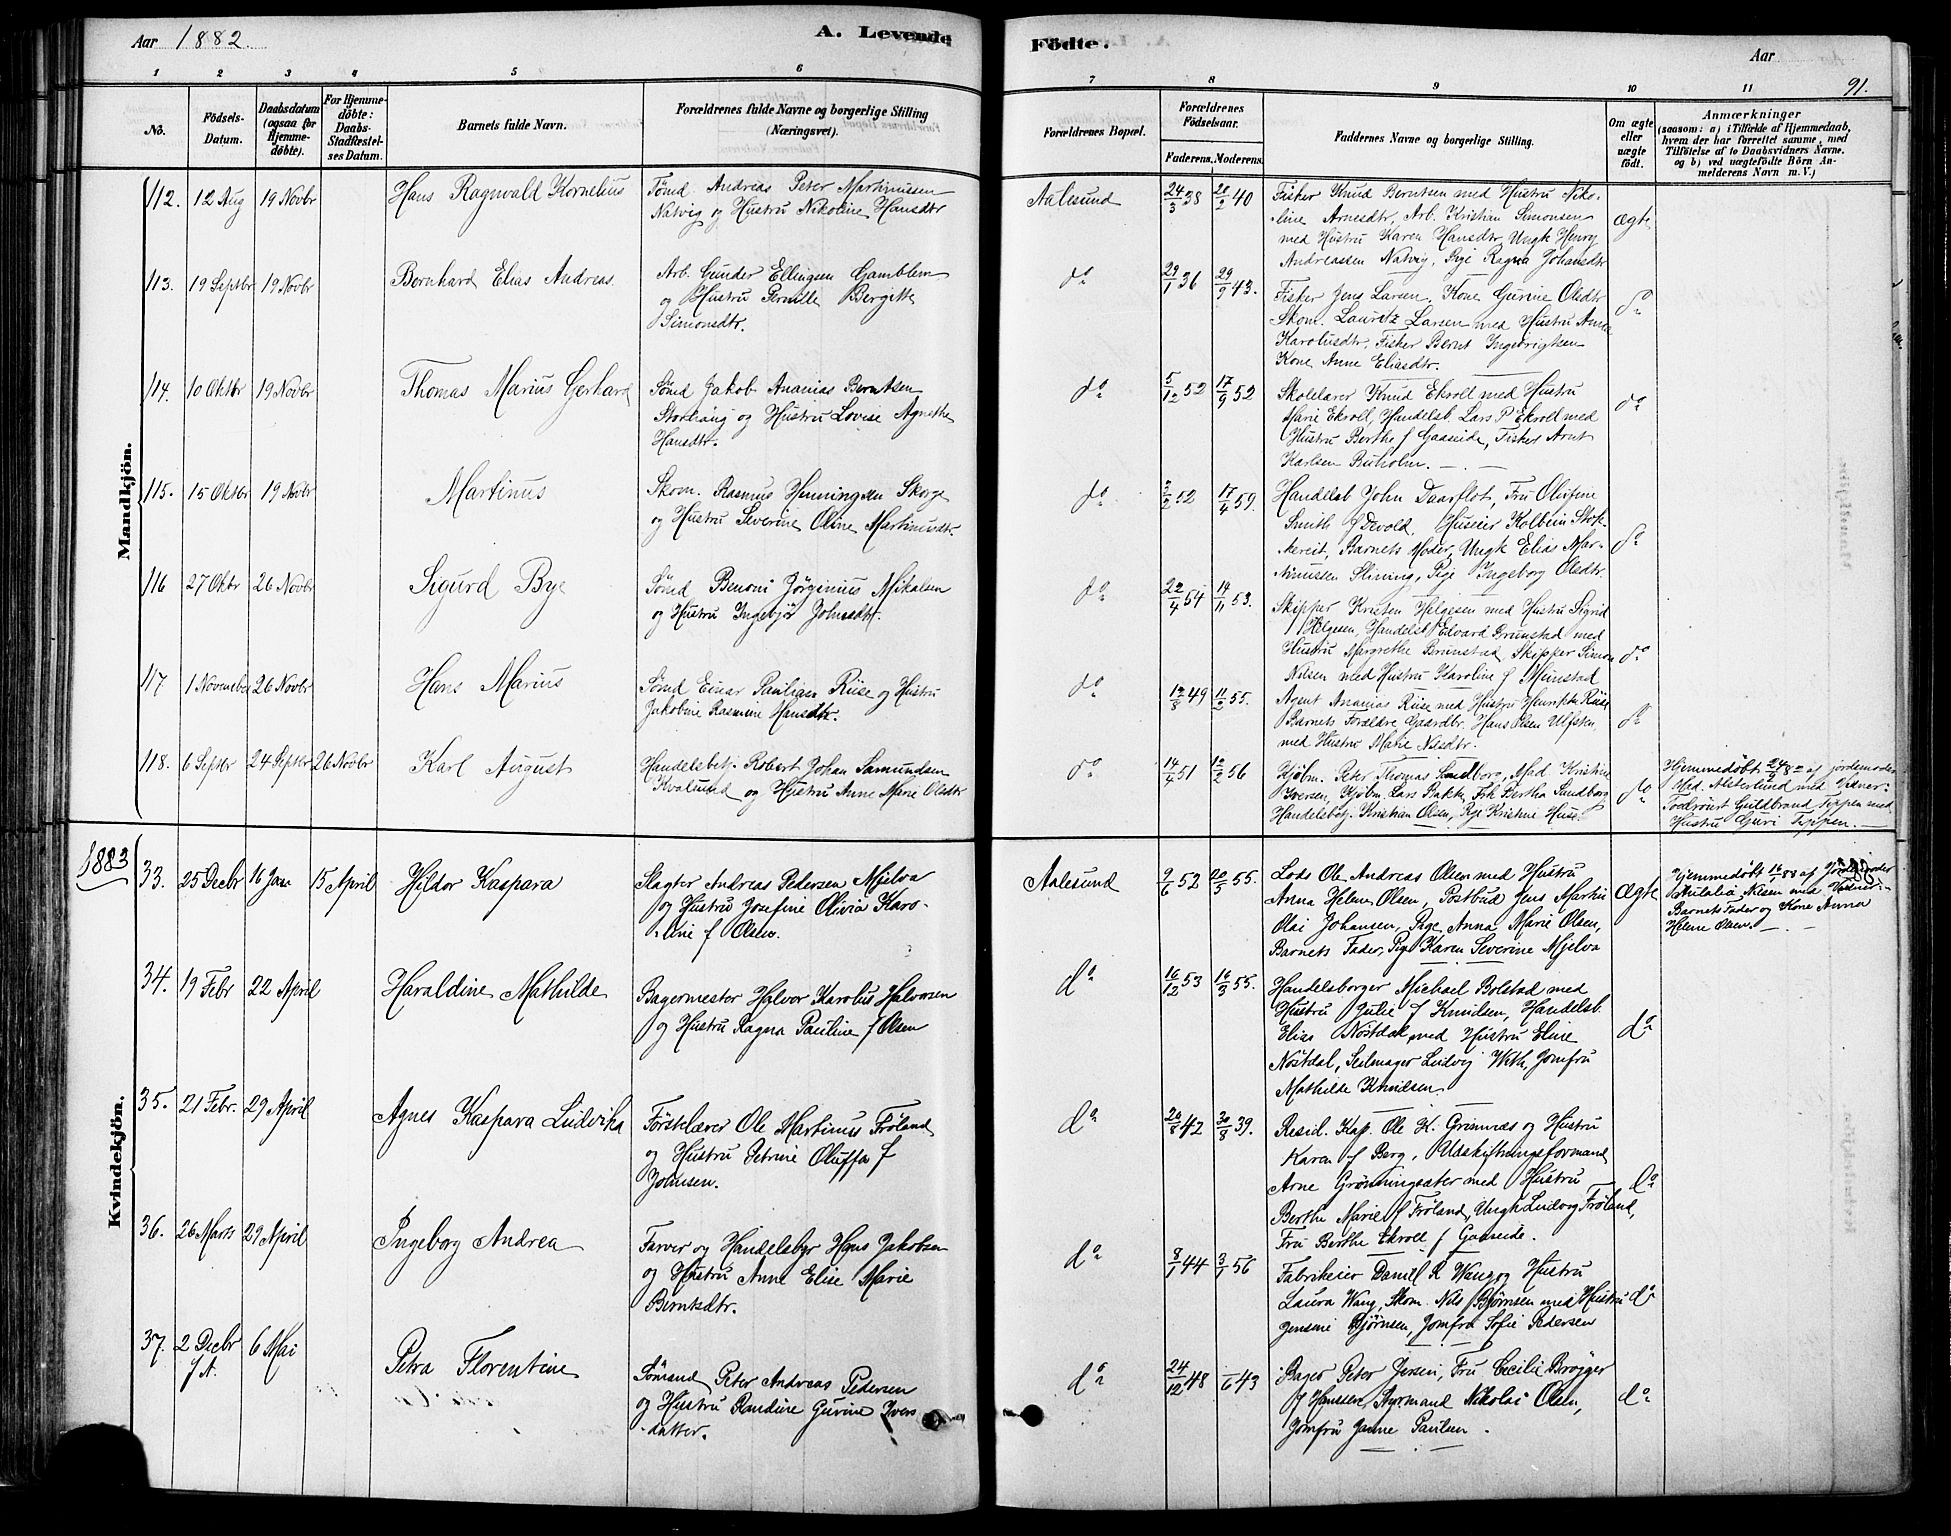 Aar 1882.
A. Levende
Födte.
Aar
91.
1 2 3 4 5 6 7 8 9 10 11
No.
Födsels-
Datum.
Daabsdatum
(ogsaa for
Hjemme-
döbte).
For Hjemme-
döbte:
Daabs-
Stadfæstel-
ses Datum.
Barnets fulde Navn.
Forældrenes fulde Navne og borgerlige Stilling
(Næringsvei).
Forældrenes Bopæl.
Forældrenes
Födselsaar.
Faderens. Moderens.
Faddernes Navne og borgerlige Stilling.
Om ægte
eller
uægte
födt.
Anmærkninger
(saasom: a) i Tilfælde af Hjemmedaab,
hvem der har forrettet samme, med
Tilföielse af to Daabsvidners Navne,
og b) ved uægtefödte Börn An-
melderens Navn m. V.)
Mandkjön.
112. 12 Aug 19 Novbr
Hans Ragnvald Kornelius
Sömd Andreas Peter Martinusen
Natvig og Hustru Nikoline Hansdtr
Aalesund
24/3 38 20/2 40
Fisker Knud Berntsen med Hustru Niko-
line Arnesdtr, Arb. Kristian Simonsen
med Hustru Karen Hansdtr, Ungk Henry
Andreassen Natvig, Pige Ragna Johansdtr
ægte
113. 19 Septbr 19 Novbr
Bernhard Elias Andreas
Arb. Gunder Ellingsen Gamblem
og Hustru Pernille Bergitte
Simonsdtr.
do
29/1 36 29/9 43.
Fisker Jens Larsen, Kone Gurine Olsdtr
Skom. Lauritz Larsen med Hustru Anna
Karolusdtr. Fisker Bernt Ingebrigtsen
Kone Anne Eliasdtr.
do
114. 10 Oktbr 19 Novbr
Thomas Marius Gerhard
Sömd Jakob Ananias Berntsen
Storhaug og Hustru Lovise Agnethe
Hansdtr.
do
5/12 52 17/9 52
Skolelærer Knud Ekroll med Hustru
Marie Ekroll, Handelsb. Lars P. Ekroll med
Hustru Berthe f Gaaseide, Fisker Arnt
Karlsen Buholm.
do
115. 15 Oktbr 19 Novbr
Martinus
Skom. Rasmus Henningsen Skorge
og Hustru Severine Oline Martinusdtr.
do
2/2 52 17/4 59.
Handelsb John Daasflot, Fru Olufine
Smith f Devold, Huseier Kolbein Stok-
kereit, Barnets Moder, Ungk Elias Mar-
tinussen Slining, Pige Ingeborg Olsdtr.
do
116 27 Oktbr 26 Novbr
Sigurd Bye
Sömd Benoni Jörginius Mikalsen
og Hustru Ingebjör Johnsdtr.
do
22/4 54 14/11 53.
Skipper Kristen Helgesen med Hustru Sigrid
Helgesen, Handelsb Edvard Brunstad med
Hustru Margrethe Brunstad, Skipper Simon
Nilsen med Hustru Karoline f Meinstad
do
117 1 November 26 Novbr
Hans Marius
Sömd Einar Paulian Riise og Hustru
Jakobine Rasmine Hansdtr.
do
12/8 49 11/2 55.
Agent Ananias Riise med Hustru Henrikke Riise
Barnets Forældre Gaardbr. Hans Olsen Ulfsten
med Hustru Marie Nilsdtr.
do
118. 6 Septbr 24 Septbr 26 Novbr
Karl August
Handelsbetj. Robert Johan Samundsen
Kvalsund og Hustru Anne Marie Olsdtr
do
14/4 51 12/2 56
Kjöbm. Peter Thomas Sundborg, Mad. Kristine
Iversen, Kjöbm Lars Bakke, Frk Bertha Sundborg
Handelsbetj. Kristian Olsen, Pige Kristine Huse.
do
Hjemmedöbt 24/9 82 af Jordemoder
Mad. Alsterlund med Vidner:
Toldrorst Guldbrand Tippen med
Hustru Guri Tippen.
1883
Kvindekjön.
33. 25 Decbr 16 Jan 15 April
Hildor Kaspara
Slagter Andreas Pedersen Mjelva
og Hustru Josefine Olivia Karo-
line f Olsen.
Aalesund
9/6 52 20/5 55.
Lods Ole Andreas Olsen med Hustru
Anna Helene Olsen, Postbud Jens Martin
Olai Johansen, Pige Anna Marie Olsen,
Barnets Fader, Pige Karen Severine Mjelva
ægte
Hjemmedöbt 16/1 83 af Jordemoder
Eulalia Nilsen med Vidner:
Barnets Fader og Kone Anna
Helene Olsen.
34. 19 Febr 22 April
Haraldine Mathilde
Bagermester Halvor Karolus Halvorsen
og Hustru Ragna Pauline f Olsen
do
16/12 53 16/3 55.
Handelsborger Michael Bolstad med
Hustru Julie f Knudsen, Handelsb.
Elias Nöstdal, med Hustru Eline
Nöstdal, Seilmager Ludvig With, Jomfru
Mathilde Knudsen
do
35. 21 Febr. 29 April
Agnes Kaspara Ludvika
Förstelærer Ole Martinus Fröland
og Hustru Petrine Oluffa f
Johnsen.
do
20/8 42 30/8 39.
Resid. Kap. Ole K. Grimnæs og Hustru
Karen f Berg, Udskiftningsformand
Arne Grönningsæter med Hustru
Berthe Marie f Fröland, Ungk Ludvig Fröland,
Fru Berthe Ekroll f Gaaseide.
do
36. 26 Marts 29 April
Ingeborg Andrea
Farver og Handelsbgr Hans Jakobsen
og Hustru Anne Elise Marie
Berntsdtr.
do
8/1 44 3/1 56
Fabrikeier Daniel R. Wang og Hustru
Laura Wang, Skom. Nils Björnsen med Hustru
Jensine Björnsen, Jomfru Sofie Pedersen
do
37. 2 Decbr f.A. 6 Mai
Petra Florentine
Sömand Peter Andreas Pedersen
og Hustru Randine Gurine Ivers-
datter.
do
24/12 48 /6 43
Bager Peter Jensen, Fru Cecilie Brögger
f Hanssen, Styrmand Nikolai Olsen,
Jomfru Janne Paulsen.
do